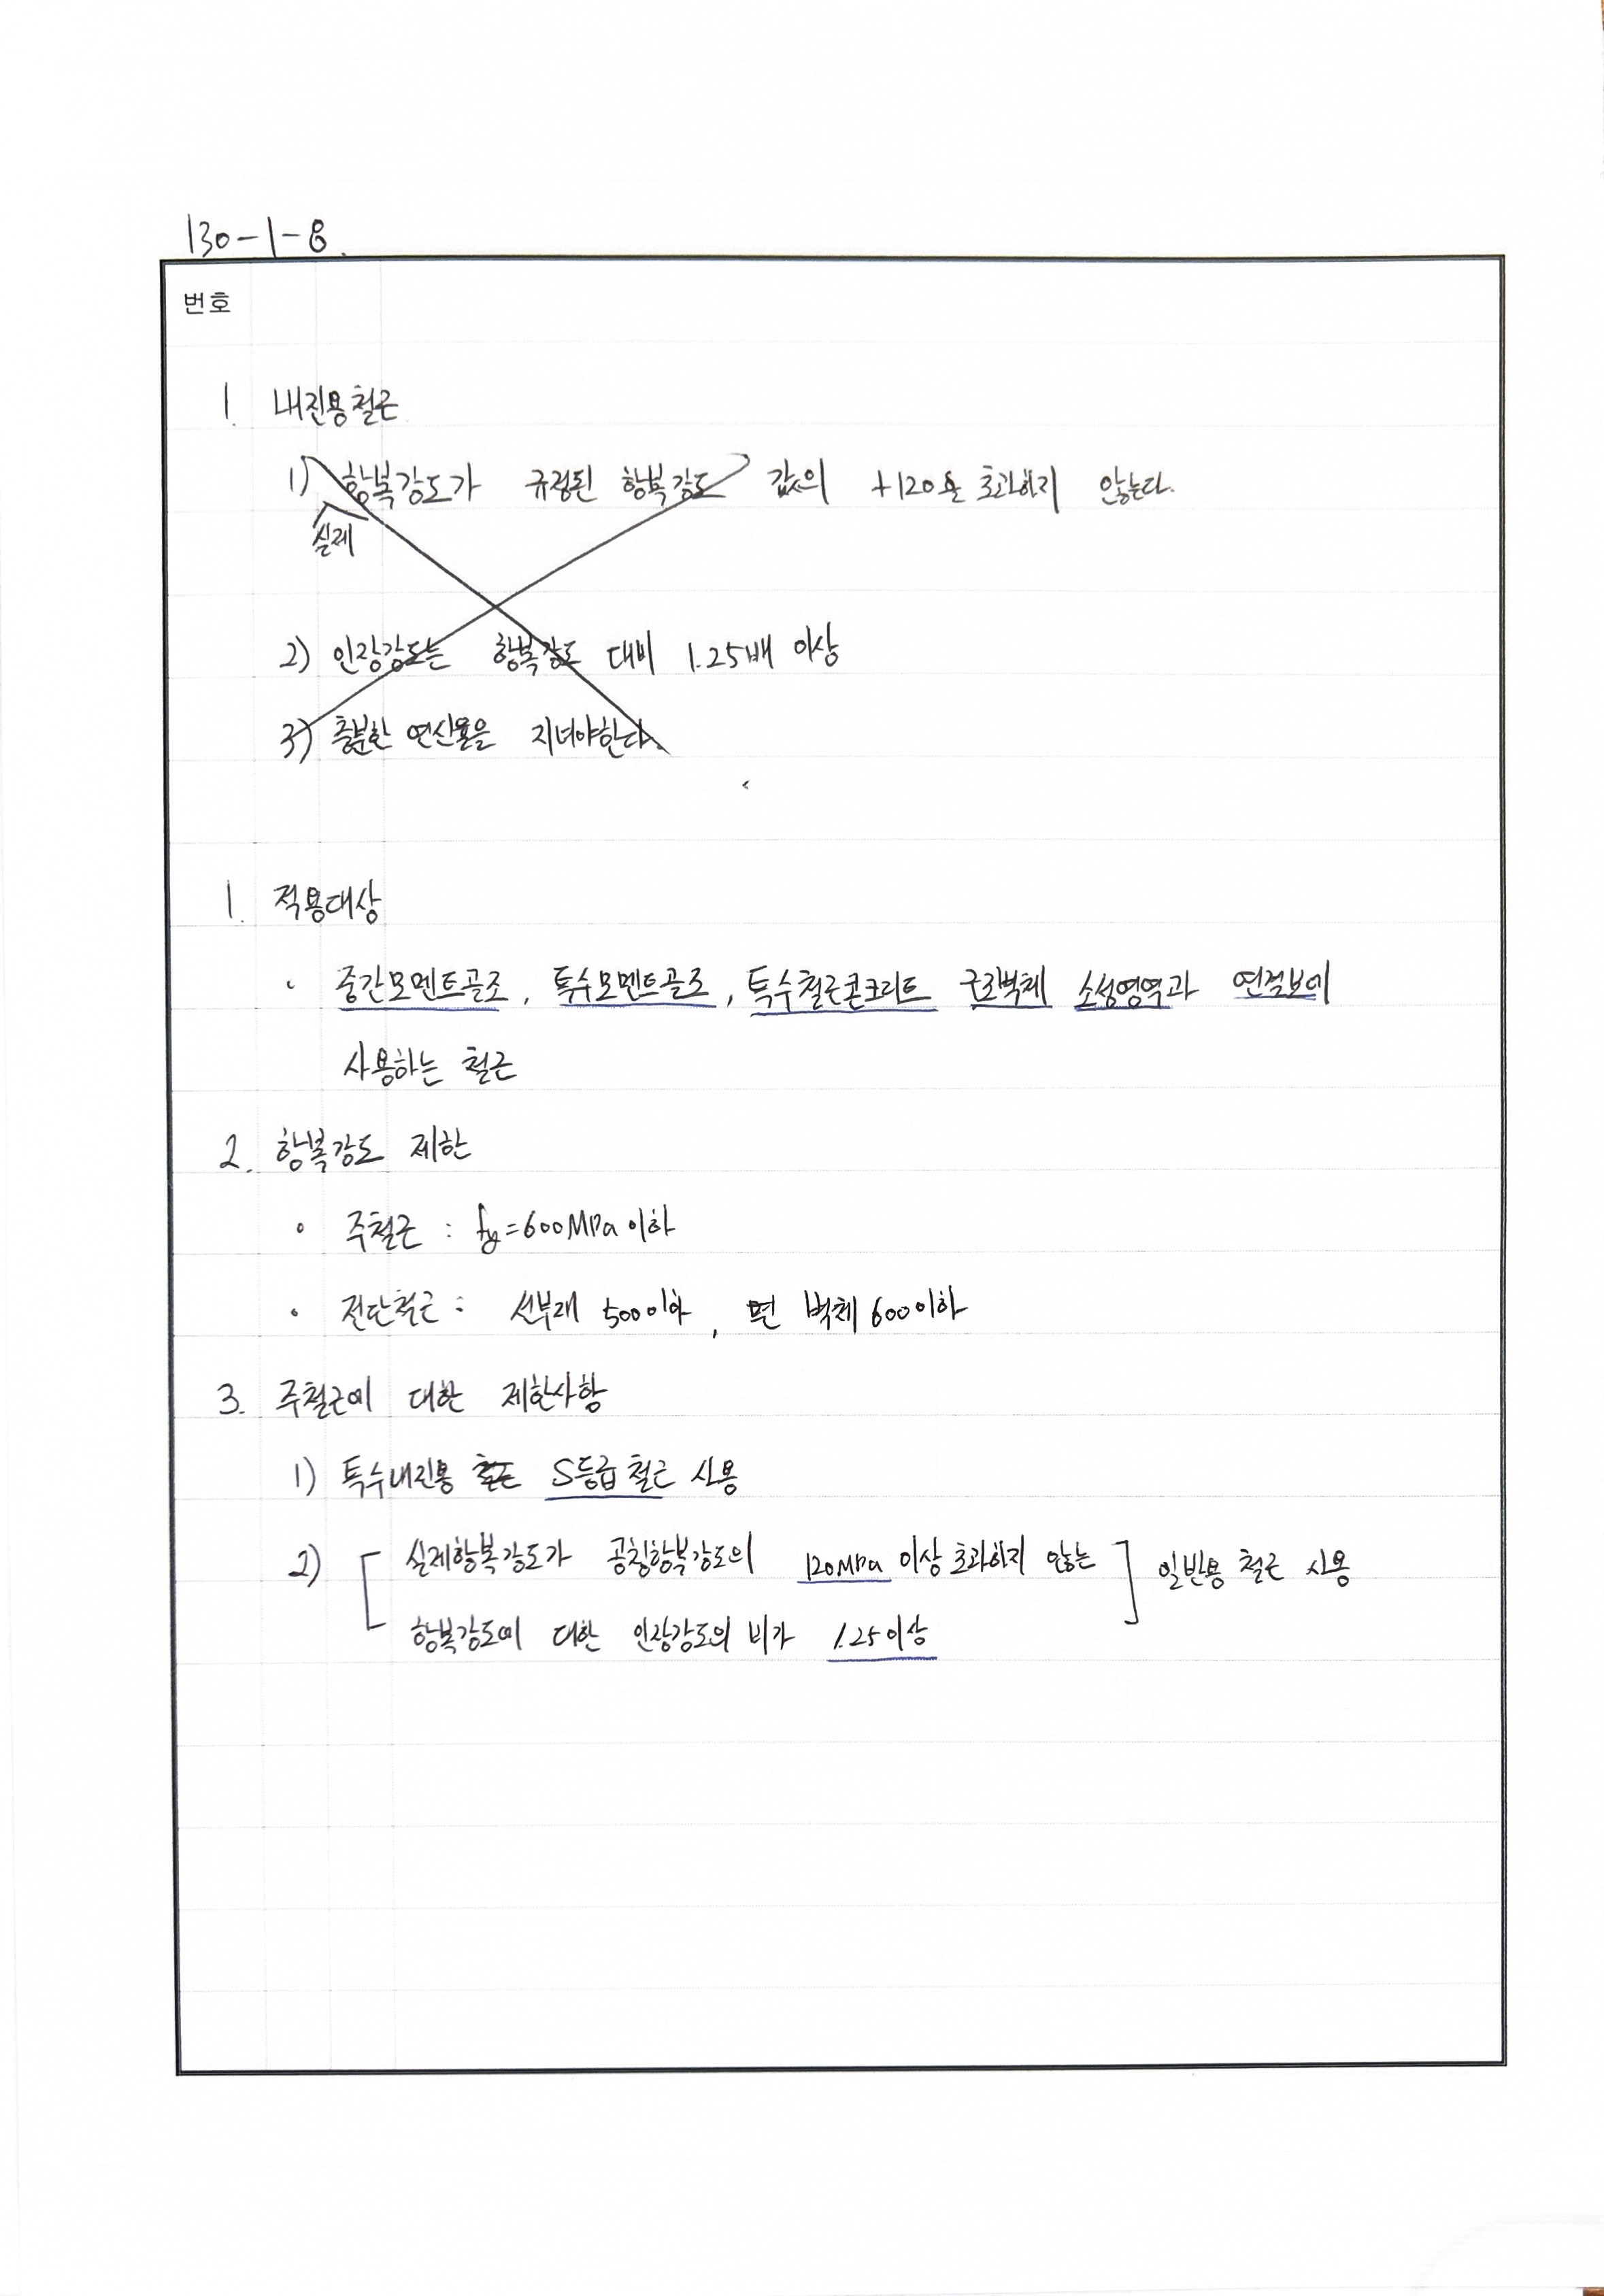 130-1-8.
번호
1. 내진용철근
1) 항복강도가 규정된 항복강도 값의 +120을 초과하지 않는다.
실제
2) 인장강도는 항복강도 대비 1.25배 이상
3) 충분한 연신율을 지녀야한다.
1. 적용대상
· 중간모멘트골조, 특수모멘트골조, 특수철근콘크리트 구조벽체 소성영역과 연결보에
사용하는 철근
2. 항복강도 제한
· 주철근 : fy=600MPa 이하
· 전단철근 : 선부재 500이하, 면 벽체 600이하
3. 주철근에 대한 제한사항
1) 특수내진용 S등급 철근 사용
2) [ 실제항복강도가 공칭항복강도의 120MPa 이상 초과하지 않는 ] 일반용 철근 사용
항복강도에 대한 인장강도의 비가 1.25이상